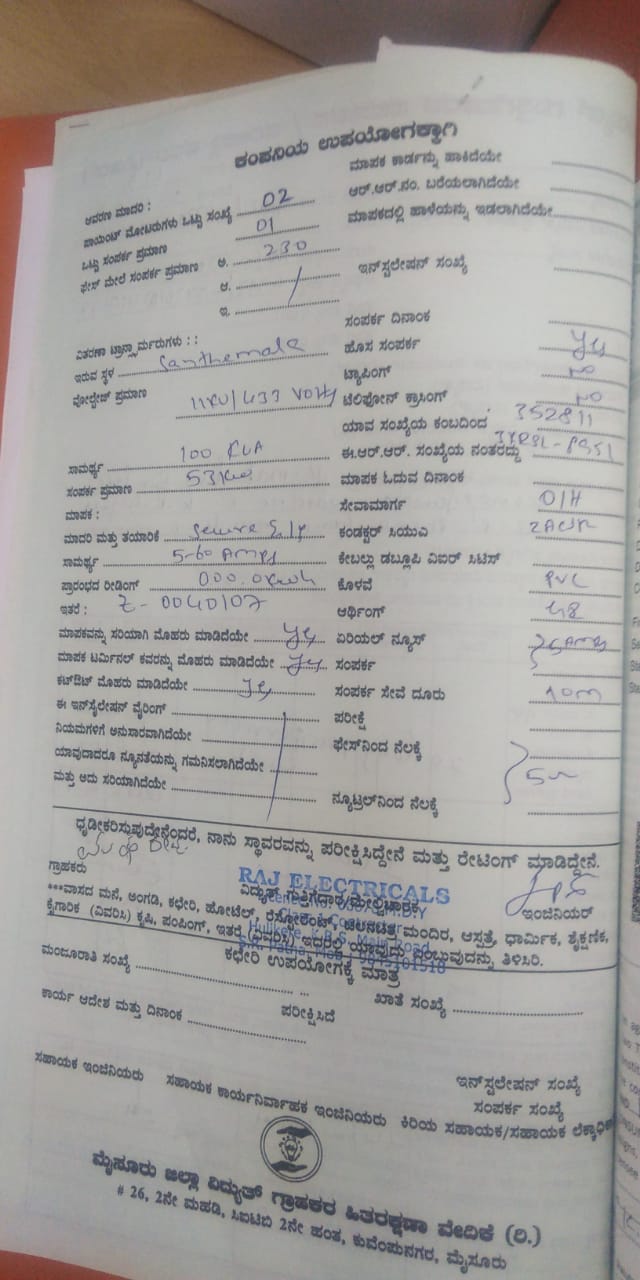 ಕಂಪನಿಯ ಉಪಯೋಗಕ್ಕಾಗಿ
ಮಾಪಕ ಕಾರ್ಡನ್ನು ಹಾಕಿದೆಯೇ
ಆವರಣ ಮಾದರಿ :
ಆರ್.ಆರ್.ನಂ. ಬರೆಯಲಾಗಿದೆಯೇ
ಪಾಯಿಂಟ್ ಮೋಟರುಗಳು ಒಟ್ಟು ಸಂಖ್ಯೆ 02
ಮಾಪಕದಲ್ಲಿ ಹಾಳೆಯನ್ನು ಇಡಲಾಗಿದೆಯೇ
ಒಟ್ಟು ಸಂಪರ್ಕ ಪ್ರಮಾಣ 01
ಫೇಸ್ ಮೇಲೆ ಸಂಪರ್ಕ ಪ್ರಮಾಣ ಅ. 230
ಆ.
ಇನ್‌ಸ್ಟಲೇಷನ್ ಸಂಖ್ಯೆ
ಇ.
ಸಂಪರ್ಕ ದಿನಾಂಕ
ವಿತರಣಾ ಟ್ರಾನ್ಸ್ಫಾರ್ಮರುಗಳು : :
ಇರುವ ಸ್ಥಳ Santhemala
ಹೊಸ ಸಂಪರ್ಕ Yes
ಟ್ಯಾಪಿಂಗ್ NO
ವೋಲ್ಟೇಜ್ ಪ್ರಮಾಣ 11KV/433 Volts
ಟೆಲಿಫೋನ್ ಕ್ರಾಸಿಂಗ್ NO
ಯಾವ ಸಂಖ್ಯೆಯ ಕಂಬದಿಂದ 352811
ಸಾಮರ್ಥ್ಯ 100 KVA
ಈ.ಆರ್.ಆರ್. ಸಂಖ್ಯೆಯ ನಂತರದ್ದು
ಸಂಪರ್ಕ ಪ್ರಮಾಣ 53Kw
ಮಾಪಕ ಓದುವ ದಿನಾಂಕ
ಮಾಪಕ :
ಸೇವಾಮಾರ್ಗ O/H
ಮಾದರಿ ಮತ್ತು ತಯಾರಿಕೆ
ಕಂಡಕ್ಟರ್ ಸಿಯುವಿ
ಸಾಮರ್ಥ್ಯ 5-60 Amps
ಕೇಬಲ್ಲು ಡಬ್ಲೂಪಿ ವಿಐರ್ ಸಿಟಿಸ್
ಪ್ರಾರಂಭದ ರೀಡಿಂಗ್ 000.0Kwh
ಕೊಳವೆ PVC
ಇತರೆ : Z-0040107
ಆರ್ಥಿಂಗ್
ಮಾಪಕವನ್ನು ಸರಿಯಾಗಿ ಮೊಹರು ಮಾಡಿದೆಯೇ Yes
ಏರಿಯಲ್ ನ್ಯೂಸ್
ಮಾಪಕ ಟರ್ಮಿನಲ್ ಕವರನ್ನು ಮೊಹರು ಮಾಡಿದೆಯೇ Yes
ಸಂಪರ್ಕ
ಕಟ್‌ಔಟ್ ಮೊಹರು ಮಾಡಿದೆಯೇ Yes
ಸಂಪರ್ಕ ಸೇವೆ ದೂರು 10m
ಈ ಇನ್‌ಸ್ಟೆಲೇಷನ್ ವೈರಿಂಗ್
ಪರೀಕ್ಷೆ
ನಿಯಮಗಳಿಗೆ ಅನುಸಾರವಾಗಿದೆಯೇ
ಫೇಸ್‌ನಿಂದ ನೆಲಕ್ಕೆ
ಯಾವುದಾದರೂ ನ್ಯೂನತೆಯನ್ನು ಗಮನಿಸಲಾಗಿದೆಯೇ
ಮತ್ತು ಅದು ಸರಿಯಾಗಿದೆಯೇ
ನ್ಯೂಟ್ರಲ್‌ನಿಂದ ನೆಲಕ್ಕೆ
ಧೃಡೀಕರಿಸುವುದೇನೆಂದರೆ, ನಾನು ಸ್ಥಾವರವನ್ನು ಪರೀಕ್ಷಿಸಿದ್ದೇನೆ ಮತ್ತು ರೇಟಿಂಗ್ ಮಾಡಿದ್ದೇನೆ.
RAJ ELECTRICALS
ಗ್ರಾಹಕರು ವಿದ್ಯುತ್ ಗುತ್ತಿಗೆದಾರ/ಮೇಲ್ವಿಚಾರಕ ಇಂಜಿನಿಯರ್
***ವಾಸದ ಮನೆ, ಅಂಗಡಿ, ಕಛೇರಿ, ಹೋಟೆಲ್, ರೆಸ್ಟೋರೆಂಟ್, ಚಲನಚಿತ್ರ ಮಂದಿರ, ಆಸ್ಪತ್ರೆ, ಧಾರ್ಮಿಕ, ಶೈಕ್ಷಣಿಕ,
ಕೈಗಾರಿಕ (ವಿವರಿಸಿ) ಕೃಷಿ, ಪಂಪಿಂಗ್, ಇತರೆ (ವಿವರಿಸಿ) ಇದರಲ್ಲಿ ಯಾವುದು ಎಂಬುವುದನ್ನು ತಿಳಿಸಿರಿ.
ಕಛೇರಿ ಉಪಯೋಗಕ್ಕೆ ಮಾತ್ರ
ಮಂಜೂರಾತಿ ಸಂಖ್ಯೆ
ಖಾತೆ ಸಂಖ್ಯೆ
ಕಾರ್ಯ ಆದೇಶ ಮತ್ತು ದಿನಾಂಕ
ಪರೀಕ್ಷಿಸಿದೆ
ಇನ್‌ಸ್ಟಲೇಷನ್ ಸಂಖ್ಯೆ
ಸಂಪರ್ಕ ಸಂಖ್ಯೆ
ಸಹಾಯಕ ಇಂಜಿನಿಯರು ಸಹಾಯಕ ಕಾರ್ಯನಿರ್ವಾಹಕ ಇಂಜಿನಿಯರು ಕಿರಿಯ ಸಹಾಯಕ/ಸಹಾಯಕ
ಮೈಸೂರು ಜಿಲ್ಲಾ ವಿದ್ಯುತ್ ಗ್ರಾಹಕರ ಹಿತರಕ್ಷಣಾ ವೇದಿಕೆ (ರಿ.)
# 26, 2ನೇ ಮಹಡಿ, ಸಿಐಟಿಬಿ 2ನೇ ಹಂತ, ಕುವೆಂಪುನಗರ, ಮೈಸೂರು